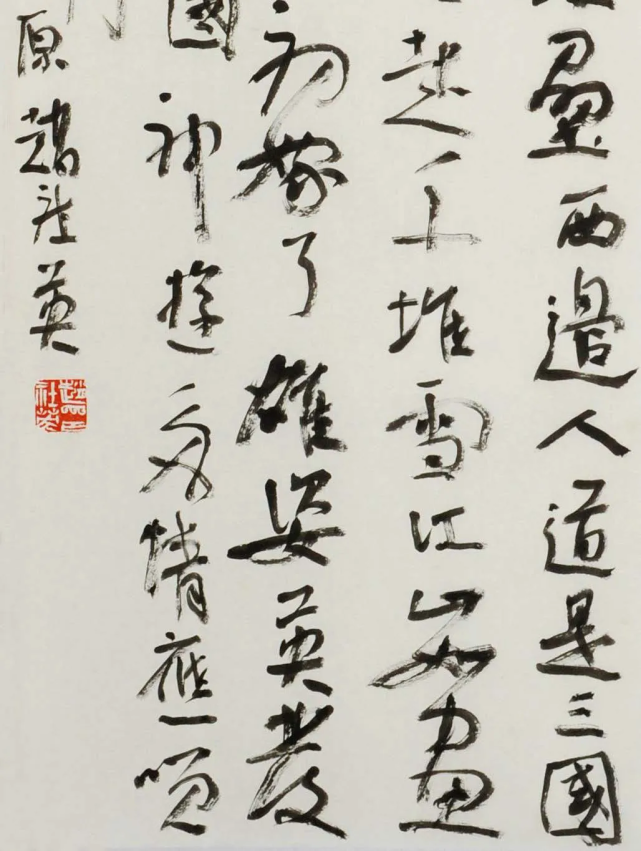 壘西邊人道是三國
起千堆雪江山如畫
初嫁了雄姿英發
國神遊多情應咲
原趙社英